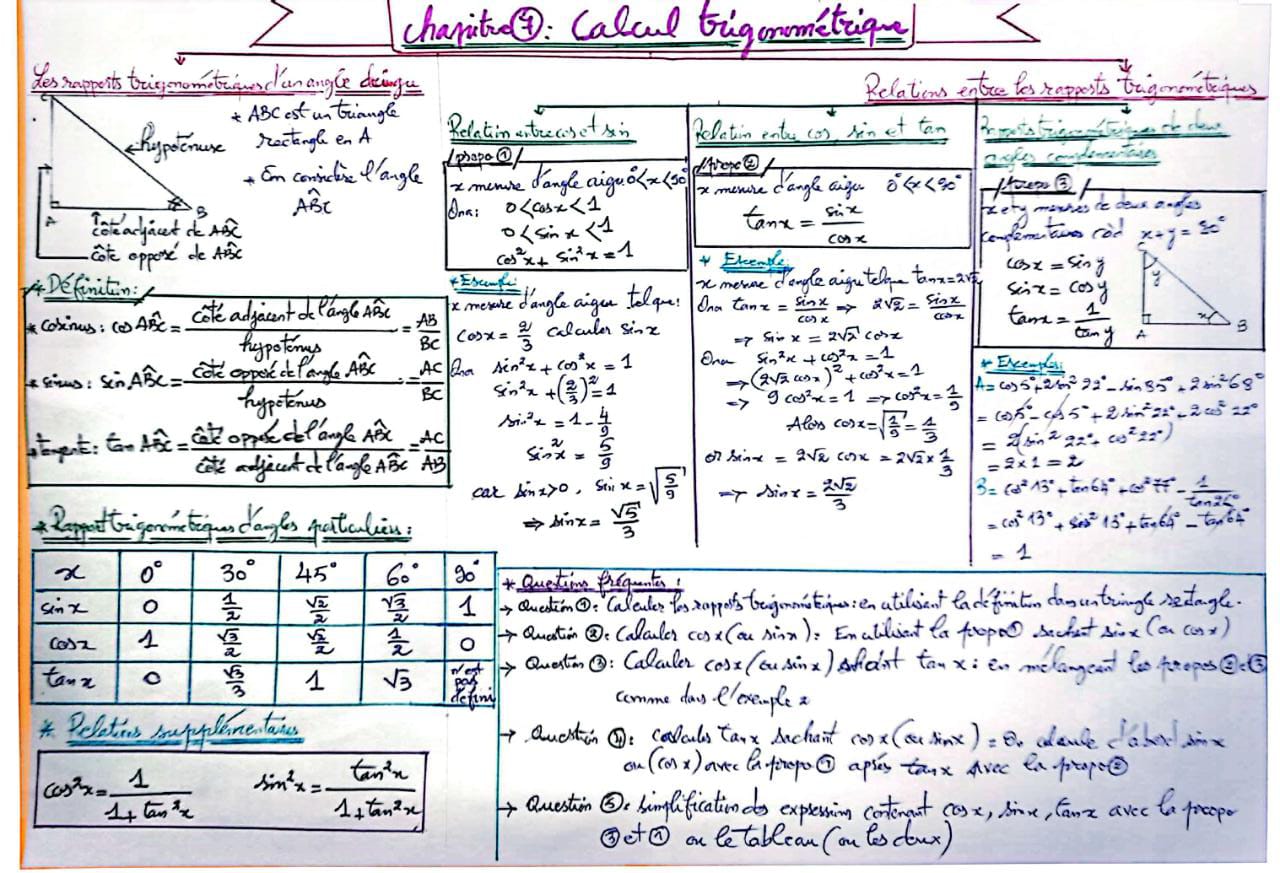 chapitre ⑦: Calcul trigonométrique
Les rapports trigonométriques d'un angle
C
hypoténuse
A
B
côté adjacent de AB̂C
côté opposé de AB̂C
* ABC est un triangle
rectangle en A
* En considère l'angle
AB̂C
* Définition:
* Cosinus: cos AB̂C = côté adjacent de l'angle AB̂C / hypoténus = AB/BC
* sinus: sin AB̂C = côté opposé de l'angle AB̂C / hypoténus = AC/BC
* tangente: tan AB̂C = côté opposé de l'angle AB̂C / côté adjacent de l'angle AB̂C = AC/AB
* Rapport trigonométriques d'angles particuliers:
x 0° 30° 45° 60° 90°
sin x 0 1/2 √2/2 √3/2 1
cos x 1 √3/2 √2/2 1/2 0
tan x 0 √3/3 1 √3 n'est pas défini
* Relations supplémentaires
cos²x = 1/(1+tan²x) sin²x = tan²x/(1+tan²x)
Relations entre les rapports trigonométriques
Relation entre cos et sin
propo ①
x mesure d'angle aigu 0°<x<90°
Ona: 0<cosx<1
0<sin x<1
cos²x + sin²x = 1
* Exemple:
x mesure d'angle aigu tel que:
cosx = 2/3 calculer sinx
Ona sin²x + cos²x = 1
sin²x + (2/3)² = 1
sin²x = 1 - 4/9
sin²x = 5/9
car sinx>0, sin x = √(5/9)
⇒ sinx = √5/3
Relation entre cos, sin et tan
propo ②
x mesure d'angle aigu 0°<x<90°
tanx = sinx/cosx
* Exemple:
x mesure d'angle aigu telque tanx = 2√2
Ona tanx = sinx/cosx ⇒ 2√2 = sinx/cosx
⇒ sin x = 2√2 cosx
Ona sin²x + cos²x = 1
⇒ (2√2 cosx)² + cos²x = 1
⇒ 9 cos²x = 1 ⇒ cos²x = 1/9
Alors cosx = √(1/9) = 1/3
or sinx = 2√2 cosx = 2√2 × 1/3
⇒ sinx = 2√2/3
Rapports trigonométriques de deux
angles complémentaires
propo ③
x et y mesures de deux angles
complémentaires càd x+y = 90°
cosx = sin y
sinx = cosy
tanx = 1/tan y
C
y
A
x
B
* Exemples:
A = cos 5° + 2sin² 22° - sin 85° + 2 sin² 68°
= cos5° - cos 5° + 2 sin² 22° + 2 cos² 22°
= 2(sin² 22° + cos² 22°)
= 2×1 = 2
B = cos² 13° + tan64° + cos² 77° - 1/tan26°
= cos² 13° + sin² 13° + tan64° - tan 64°
= 1
* Questions fréquentes:
→ Question ①: Calculer les rapports trigonométriques: en utilisant la définition dans un triangle rectangle.
→ Question ②: Calculer cos x (ou sinx): En utilisant la propo ① sachant sinx (ou cosx)
→ Question ③: Calculer cosx (ou sinx) sachant tan x: en mélangeant les propos ② et ③
comme dans l'exemple 2
→ Question ④: calculer tanx sachant cosx (ou sinx) = On calcule d'abord sinx
ou (cos x) avec la propo ① après tanx avec la propo ②
→ Question ⑤: simplification des expression contenant cosx, sinx, tanx avec la propo
③ et ① ou le tableau (ou les deux)